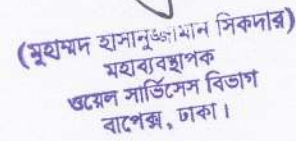 (মুহাম্মদ হাসানুজ্জামান সিকদার)
মহাব্যবস্থাপক
ওয়েল সার্ভিসেস বিভাগ
বাপেক্স, ঢাকা।